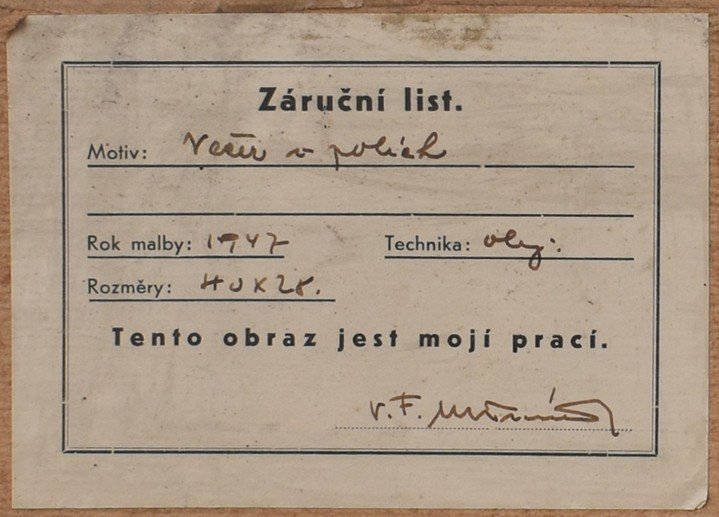 Záruční list.
Motiv: Večer v polích
Rok malby: 1947 Technika: olej:
Rozměry: 40x28.
Tento obraz jest mojí prací.
V. F.